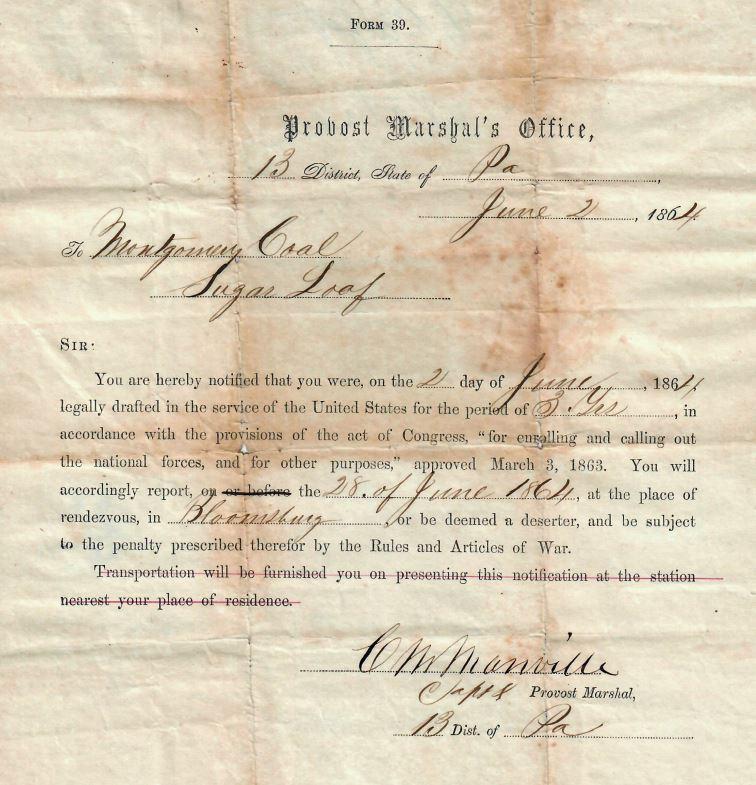 FORM 39.
Provost Marshal's Office,
13 District, State of Pa,
June 2, 1864
To Montgomery Coal
Sugar Loaf
SIR:
You are hereby notified that you were, on the 2 day of June, 1864
legally drafted in the service of the United States for the period of 3. Yrs, in
accordance with the provisions of the act of Congress, "for enrolling and calling out
the national forces, and for other purposes," approved March 3, 1863. You will
accordingly report, on or before the 28. of June 1864, at the place of
rendezvous, in Bloomsburg, or be deemed a deserter, and be subject
to the penalty prescribed therefor by the Rules and Articles of War.
Transportation will be furnished you on presenting this notification at the station
nearest your place of residence.
C M Manville
Capt & Provost Marshal,
13 Dist. of Pa